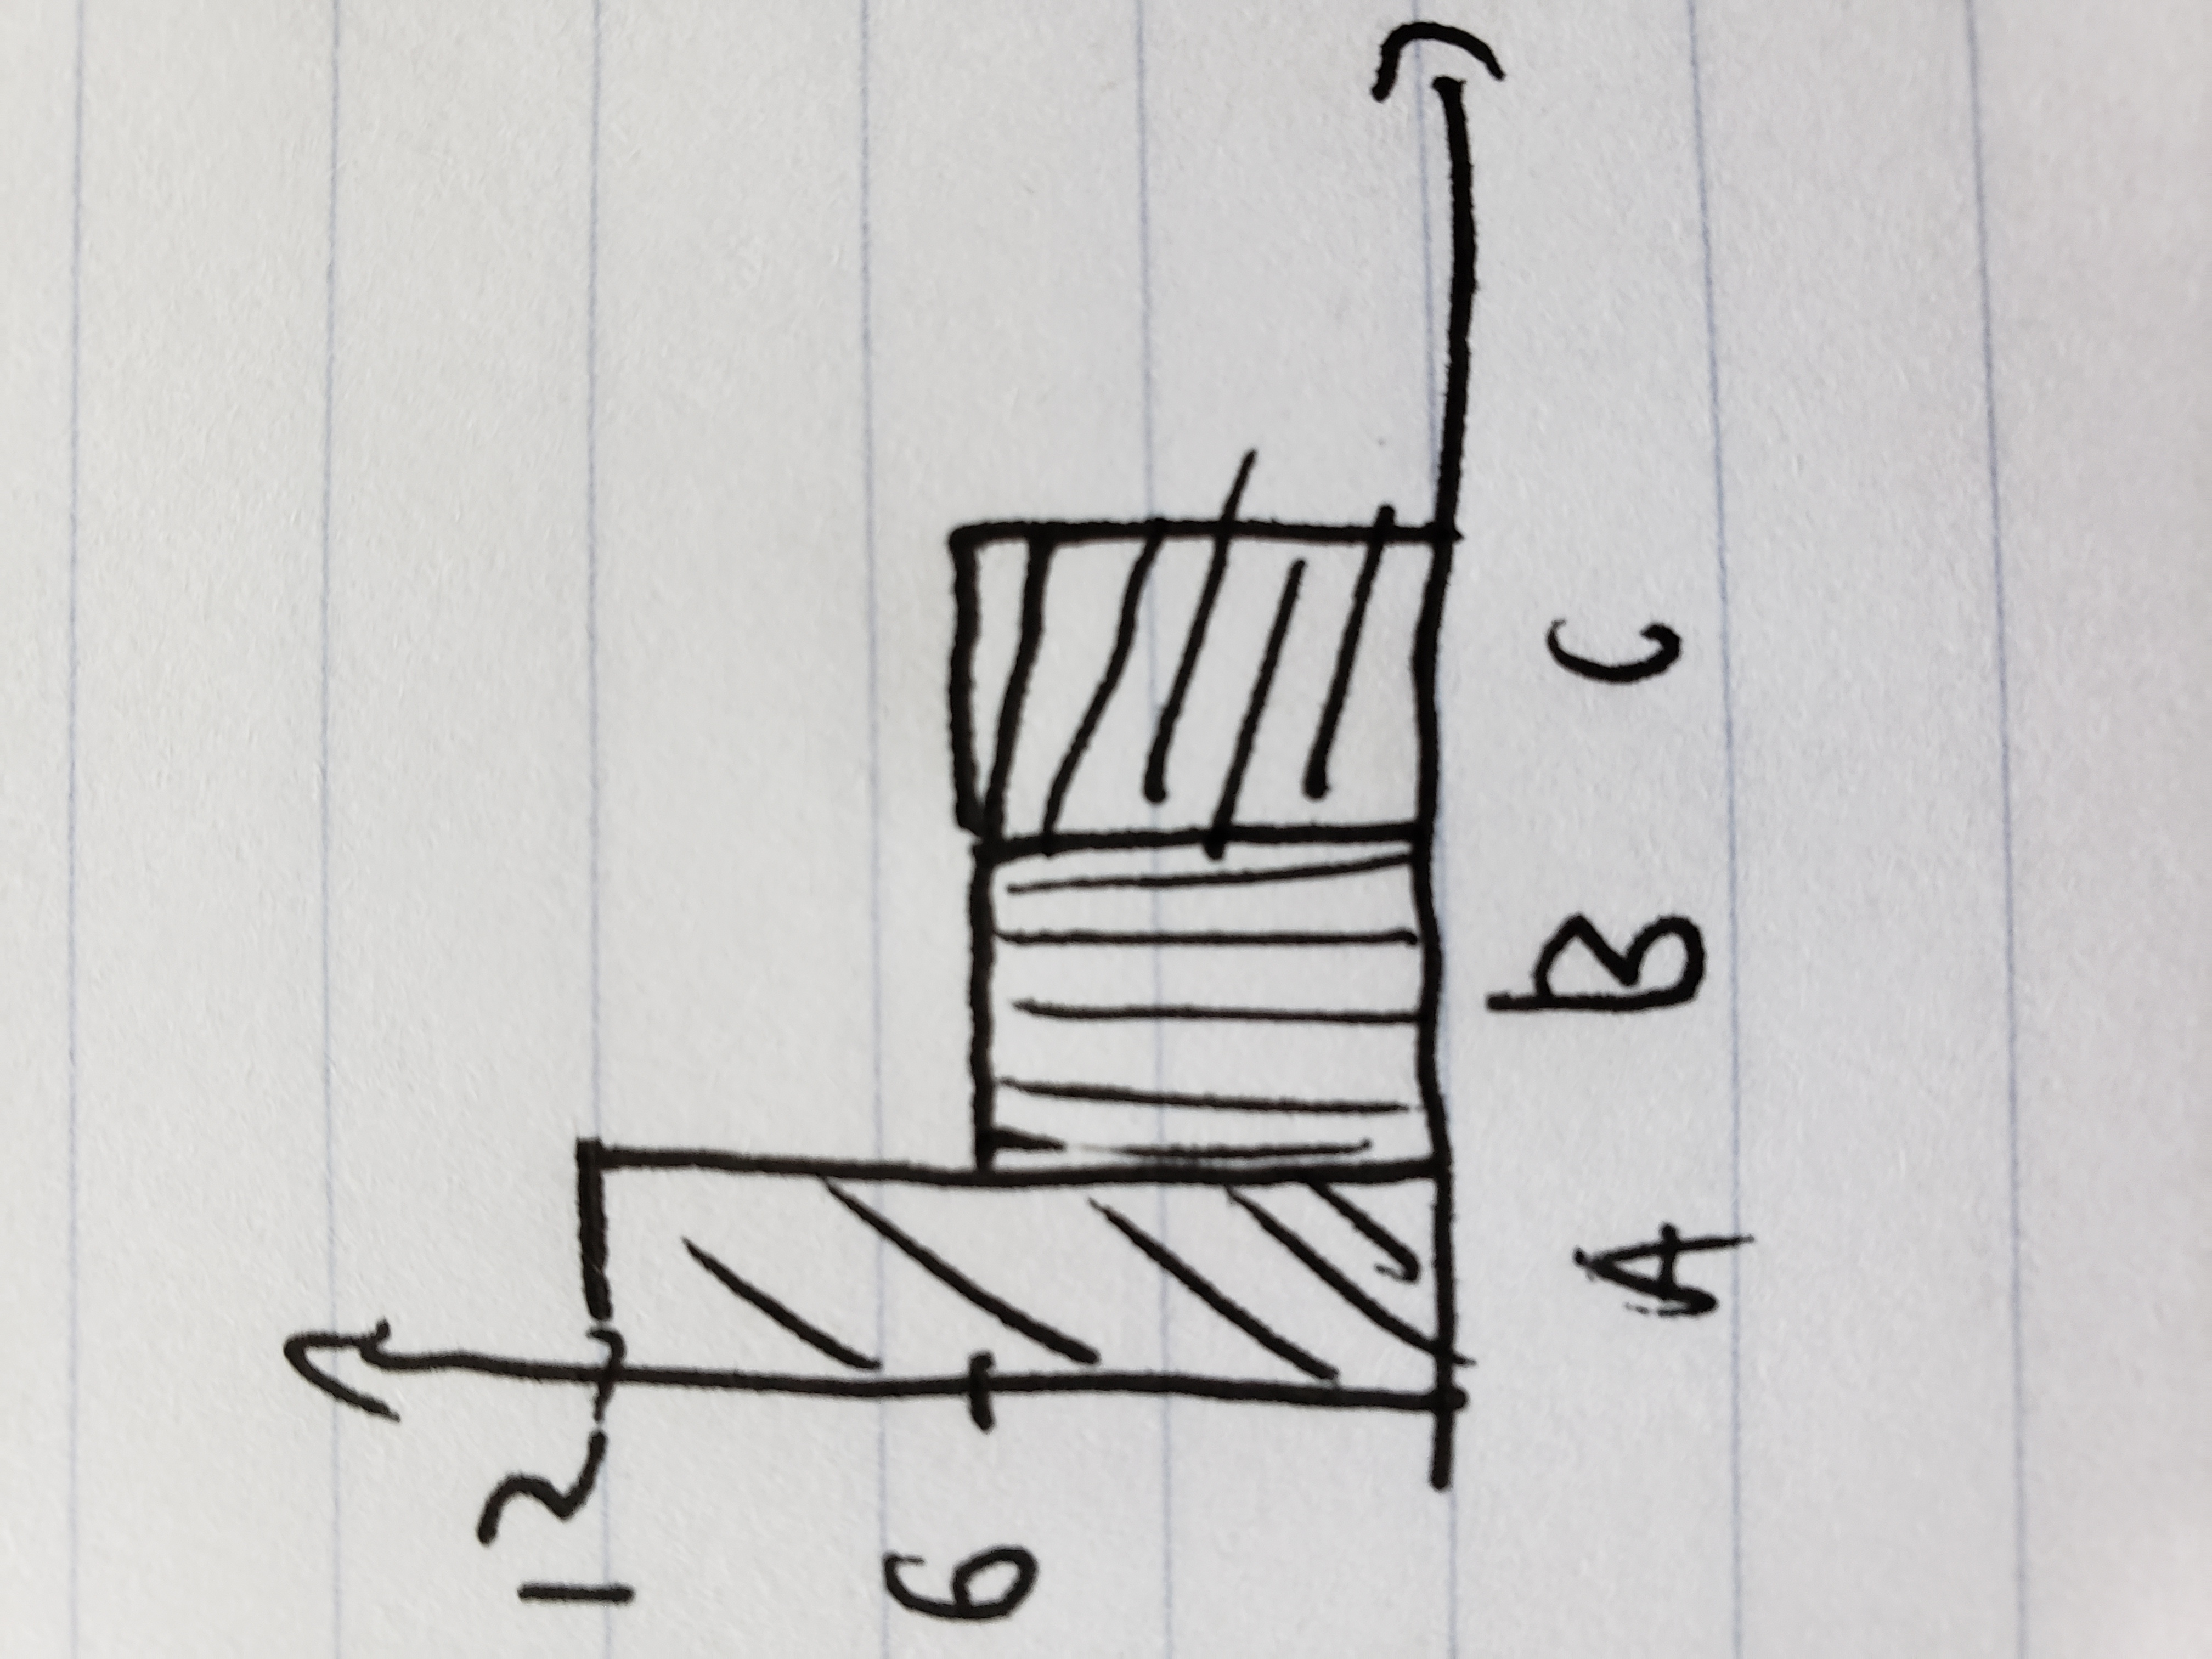 12
6
A B C